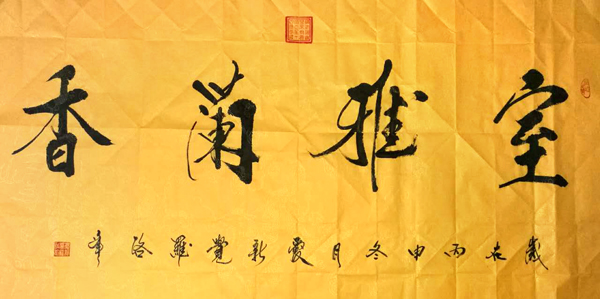 室雅蘭香
歲在丙申冬月愛新覺羅啓牮